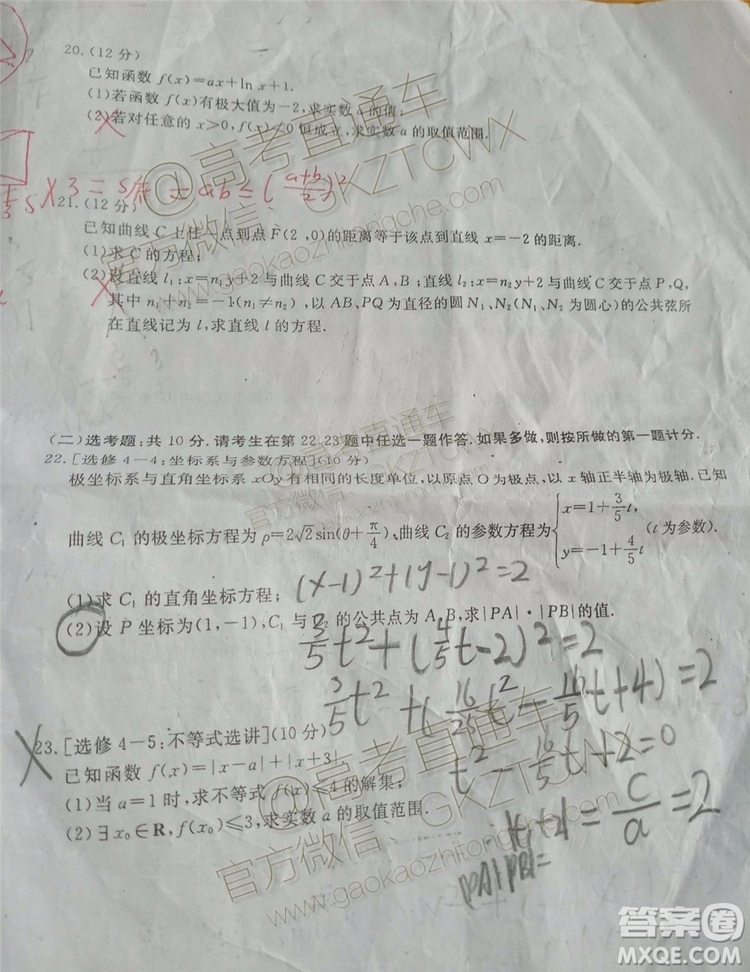 20.(12 分)
已知函数 f(x)=ax+ln x+1.
(1)若函数 f(x)有极大值为-2,求实数 a 的值;
(2)若对任意的 x>0,f(x)<0 恒成立,求实数 a 的取值范围.
= ab ≤ (a+b/2)²
21.(12 分)
已知曲线 C 上任一点到点 F(2,0)的距离等于该点到直线 x=-2 的距离.
(1)求 C 的方程;
(2)设直线 l₁:x=n₁y+2 与曲线 C 交于点 A,B;直线 l₂:x=n₂y+2 与曲线 C 交于点 P,Q,
其中 n₁+n₂=-1(n₁≠n₂),以 AB、PQ 为直径的圆 N₁、N₂(N₁、N₂ 为圆心)的公共弦所
在直线记为 l,求直线 l 的方程.
(二)选考题:共 10 分.请考生在第 22、23题中任选一题作答.如果多做,则按所做的第一题计分.
22.[选修 4-4:坐标系与参数方程](10 分)
极坐标系与直角坐标系 xOy 有相同的长度单位,以原点 O 为极点,以 x 轴正半轴为极轴.已知
曲线 C₁ 的极坐标方程为 ρ=2√2sin(θ+π/4),曲线 C₂ 的参数方程为{x=1+3/5t, y=-1+4/5t (t 为参数).
(1)求 C₁ 的直角坐标方程; (x-1)²+(y-1)²=2
(2)设 P 坐标为(1,-1),C₁ 与 C₂ 的公共点为 A,B,求|PA|·|PB|的值.
3/5t²+(4/5t-2)²=2
3/5t²+(16/25t²-16/5t+4)=2
t²-16/5t+2=0
23.[选修 4-5:不等式选讲](10 分)
已知函数 f(x)=|x-a|+|x+3|.
(1)当 a=1 时,求不等式 f(x)≤4 的解集;
(2)∃x₀∈R,f(x₀)≤3,求实数 a 的取值范围.
=c/a=2
|PA||PB|=
@高考直通车
官方微信:GKZTCWX
www.gaokaozhitongche.com
@高考直通车
官方微信:GKZTCWX
www.gaokaozhitongche.com
答案圈
MXQE.COM